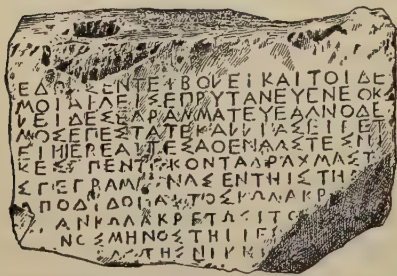 ΕΔΟΧΣΕΝΤΕΙΒΟΛΕΙΚΑΙΤΟΙΔΕ
ΜΟΙΑΙΓΕΙΣΕΠΡΥΤΑΝΕΥΕΝΕΟΚ
ΛΕΙΔΕΣΕΓΡΑΜΜΑΤΕΥΕΑΓΝΟΔΕ
ΜΟΣΕΠΕΣΤΑΤΕΚΑΛΛΙΑΣΕΙΠΕΤ
ΕΙΗΙΕΡΕΑΙΤΕΣΑΘΕΝΑΑΣΤΕΣΝΙ
ΚΕΣΠΕΝΤΕΚΟΝΤΑΔΡΑΧΜΑΣΤ
ΑΣΓΕΓΡΑΜΜΕΝΑΣΕΝΤΗΙΣΤΗ
ΑΠΟΔΙΔΟΝΑΙΤΟΣΚΩΛΑΚΡ
ΑΝΚΩΛΑΚΡΕΤΩΣΙΤΟ
ΝΟΣΜΗΝΟΣΤΗΙΙΕΡ
ΑΤΗΣΝΙΚΗ